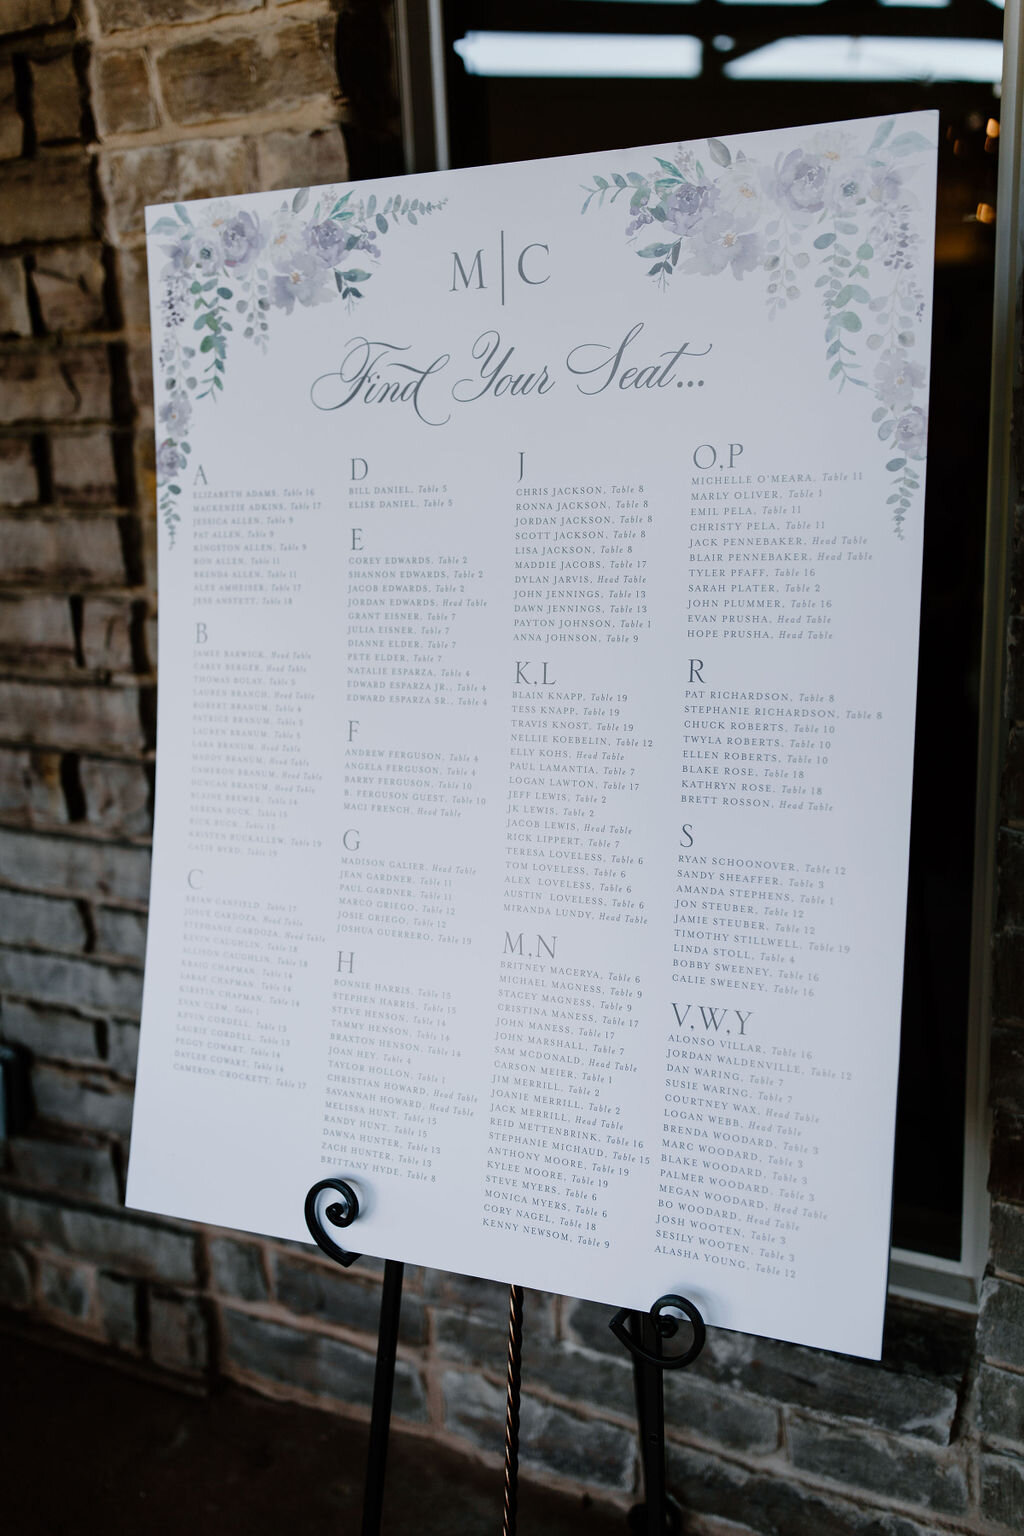 M|C
Find Your Seat...
A
ELIZABETH ADAMS, Table 16
MACKENZIE ADKINS, Table 17
JESSICA ALLEN, Table 9
PAT ALLEN, Table 9
KINGSTON ALLEN, Table 9
RON ALLEN, Table 11
BRENDA ALLEN, Table 11
ALEX AMHEISER, Table 17
JESS ANSTETT, Table 18
B
JAMEE BARWICK, Head Table
CAREY BERGER, Head Table
THOMAS BOLAY, Table 5
LAUREN BRANCH, Head Table
ROBERT BRANUM, Table 4
PATRICE BRANUM, Table 5
LAUREN BRANUM, Table 5
LARA BRANUM, Head Table
MADDY BRANUM, Head Table
CAMERON BRANUM, Head Table
DUNCAN BRANUM, Head Table
BLAINE BREWER, Table 14
SERENA BUCK, Table 15
RICK BUCK, Table 15
KRISTEN BUCKALLEW, Table 19
CATIE BYRD, Table 19
C
BRIAN CANFIELD, Table 17
JOSUE CARDOZA, Head Table
STEPHANIE CARDOZA, Head Table
KEVIN CAUGHLIN, Table 18
ALLISON CAUGHLIN, Table 18
KRAIG CHAPMAN, Table 14
LARAE CHAPMAN, Table 14
KIRSTIN CHAPMAN, Table 14
EVAN CLEM, Table 1
KEVIN CORDELL, Table 13
LAURIE CORDELL, Table 13
PEGGY COWART, Table 14
DAYLEE COWART, Table 14
CAMERON CROCKETT, Table 17
D
BILL DANIEL, Table 5
ELISE DANIEL, Table 5
E
COREY EDWARDS, Table 2
SHANNON EDWARDS, Table 2
JACOB EDWARDS, Table 2
JORDAN EDWARDS, Head Table
GRANT EISNER, Table 7
JULIA EISNER, Table 7
DIANNE ELDER, Table 7
PETE ELDER, Table 7
NATALIE ESPARZA, Table 4
EDWARD ESPARZA JR., Table 4
EDWARD ESPARZA SR., Table 4
F
ANDREW FERGUSON, Table 4
ANGELA FERGUSON, Table 4
BARRY FERGUSON, Table 10
B. FERGUSON GUEST, Table 10
MACI FRENCH, Head Table
G
MADISON GALIER, Head Table
JEAN GARDNER, Table 11
PAUL GARDNER, Table 11
MARCO GRIEGO, Table 12
JOSIE GRIEGO, Table 12
JOSHUA GUERRERO, Table 19
H
BONNIE HARRIS, Table 15
STEPHEN HARRIS, Table 15
STEVE HENSON, Table 14
TAMMY HENSON, Table 14
BRAXTON HENSON, Table 14
JOAN HEY, Table 4
TAYLOR HOLLON, Table 1
CHRISTIAN HOWARD, Head Table
SAVANNAH HOWARD, Head Table
MELISSA HUNT, Table 15
RANDY HUNT, Table 15
DAWNA HUNTER, Table 13
ZACH HUNTER, Table 13
BRITTANY HYDE, Table 8
J
CHRIS JACKSON, Table 8
RONNA JACKSON, Table 8
JORDAN JACKSON, Table 8
SCOTT JACKSON, Table 8
LISA JACKSON, Table 8
MADDIE JACOBS, Table 17
DYLAN JARVIS, Head Table
JOHN JENNINGS, Table 13
DAWN JENNINGS, Table 13
PAYTON JOHNSON, Table 1
ANNA JOHNSON, Table 9
K,L
BLAIN KNAPP, Table 19
TESS KNAPP, Table 19
TRAVIS KNOST, Table 19
NELLIE KOEBELIN, Table 12
ELLY KOHS, Head Table
PAUL LAMANTIA, Table 7
LOGAN LAWTON, Table 17
JEFF LEWIS, Table 2
JK LEWIS, Table 2
JACOB LEWIS, Head Table
RICK LIPPERT, Table 7
TERESA LOVELESS, Table 6
TOM LOVELESS, Table 6
ALEX LOVELESS, Table 6
AUSTIN LOVELESS, Table 6
MIRANDA LUNDY, Head Table
M,N
BRITNEY MACERYA, Table 6
MICHAEL MAGNESS, Table 9
STACEY MAGNESS, Table 9
CRISTINA MANESS, Table 17
JOHN MANESS, Table 17
JOHN MARSHALL, Table 7
SAM MCDONALD, Head Table
CARSON MEIER, Table 1
JIM MERRILL, Table 2
JOANIE MERRILL, Table 2
JACK MERRILL, Head Table
REID METTENBRINK, Table 16
STEPHANIE MICHAUD, Table 15
ANTHONY MOORE, Table 19
KYLEE MOORE, Table 19
STEVE MYERS, Table 6
MONICA MYERS, Table 6
CORY NAGEL, Table 18
KENNY NEWSOM, Table 9
O,P
MICHELLE O'MEARA, Table 11
MARLY OLIVER, Table 1
EMIL PELA, Table 11
CHRISTY PELA, Table 11
JACK PENNEBAKER, Head Table
BLAIR PENNEBAKER, Head Table
TYLER PFAFF, Table 16
SARAH PLATER, Table 2
JOHN PLUMMER, Table 16
EVAN PRUSHA, Head Table
HOPE PRUSHA, Head Table
R
PAT RICHARDSON, Table 8
STEPHANIE RICHARDSON, Table 8
CHUCK ROBERTS, Table 10
TWYLA ROBERTS, Table 10
ELLEN ROBERTS, Table 10
BLAKE ROSE, Table 18
KATHRYN ROSE, Table 18
BRETT ROSSON, Head Table
S
RYAN SCHOONOVER, Table 12
SANDY SHEAFFER, Table 3
AMANDA STEPHENS, Table 1
JON STEUBER, Table 12
JAMIE STEUBER, Table 12
TIMOTHY STILLWELL, Table 19
LINDA STOLL, Table 4
BOBBY SWEENEY, Table 16
CALIE SWEENEY, Table 16
V,W,Y
ALONSO VILLAR, Table 16
JORDAN WALDENVILLE, Table 12
DAN WARING, Table 7
SUSIE WARING, Table 7
COURTNEY WAX, Head Table
LOGAN WEBB, Head Table
BRENDA WOODARD, Table 3
MARC WOODARD, Table 3
BLAKE WOODARD, Table 3
PALMER WOODARD, Table 3
MEGAN WOODARD, Head Table
BO WOODARD, Head Table
JOSH WOOTEN, Table 3
SESILY WOOTEN, Table 3
ALASHA YOUNG, Table 12